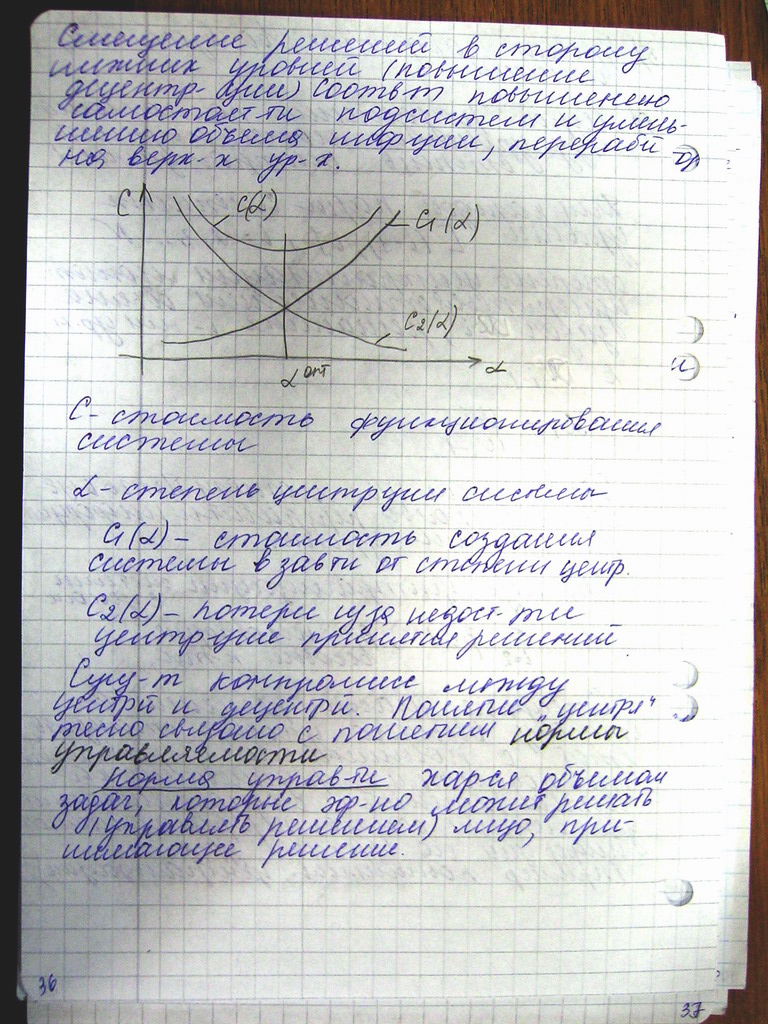 Смещение решений в сторону
нижних уровней (повышение
децентр-ции) соотв-т повышению
самостоят-ти подсистем и умень-
шению объема инф-ции, перераб-й
на верх-х ур-х.
C
C(α)
C1(α)
C2(α)
α опт
α
C - стоимость функционирования
системы
α - степень центр-ции системы
C1(α) - стоимость создания
системы в зав-ти от степени центр.
C2(α) - потери из-за недост-ти
центр-ции принятия решений
Сущ-т компромисс между
центр-й и децентр-й. Понятие "центр-я"
тесно связано с понятием нормы
управляемости
Норма управ-ти хар-ся объемом
задач, которые эф-но может решать
(управлять решением) лицо, при-
нимающее решение.
36
37